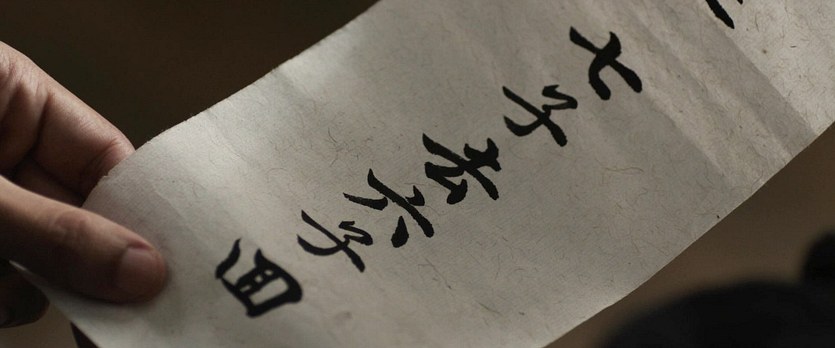 七子去六子回